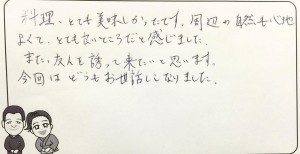 料理、とても美味しかったです。周辺の自然も心地
よくて、とても良いところだと感じました。
また、友人を誘って来たいと思います。
今回はどうもお世話になりました。